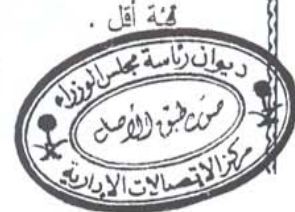 فئة أقل .
ديوان رئاسة مجلس الوزراء
صورة طبق الأصل
مركز الاتصالات الإدارية